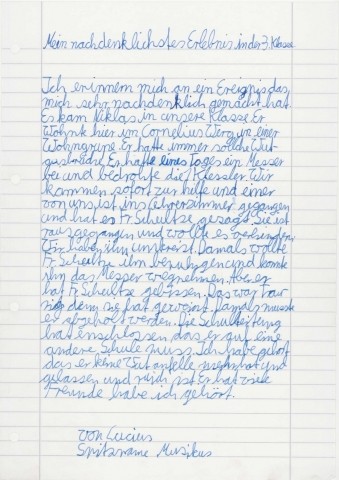 Mein nachdenklichstes Erlebnis in der 3. Klasse
Ich erinnern mich an ein Ereignis das
mich sehr nachdenklich gemacht hat.
Es kam Niklas, in unsere Klasse. Er
Wohnte hier im Cornelius Werg in einer
Wohngruppe. Er hatte immer solche Wut
ausbrüche. Er hatte eines Tages ein Messer
bei und bedrohte die Klessler. Wir
kammen sofort zur hilfe und einer
von uns ist ins Lehrerzimmer gegangen
und hat es Fr. Schultze gesagt. Sie ist
rausgegangen und wollte es verhindern
Wir haben ihn umkreist. Damals wollte
Fr. Scheultze ihn beruhugen und konnte
ihm das Messer wegnehmen. Aber er
hat Fr. Scheultze gebissen. Das war trau
rig denn sie hat geweint. Damals musste
er abgeholt werden. Die Schulleitung
hat enschlossen das er auf eine
andere Schule muss. Ich habe gehört
das er keine Wut anfelle mehr hat und
gelassen und ruhig ist. Er hat viele
Freunde habe ich gehört.
von Lucius
Spitzname Musikus